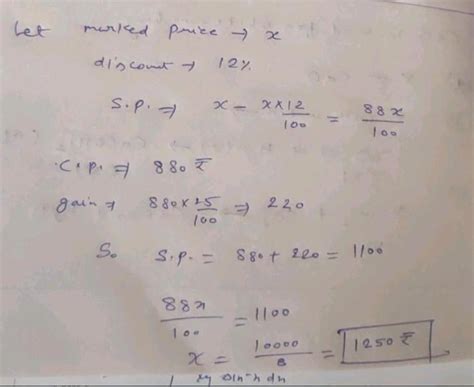 Let marked price → x
discount → 12%
S.p. ⇒ x - x×12/100 = 88x/100
C.p. ⇒ 880 ₹
gain → 880×25/100 ⇒ 220
So S.p. = 880 + 220 = 1100
88x/100 = 1100
x = 10000/8 = 1250 ₹